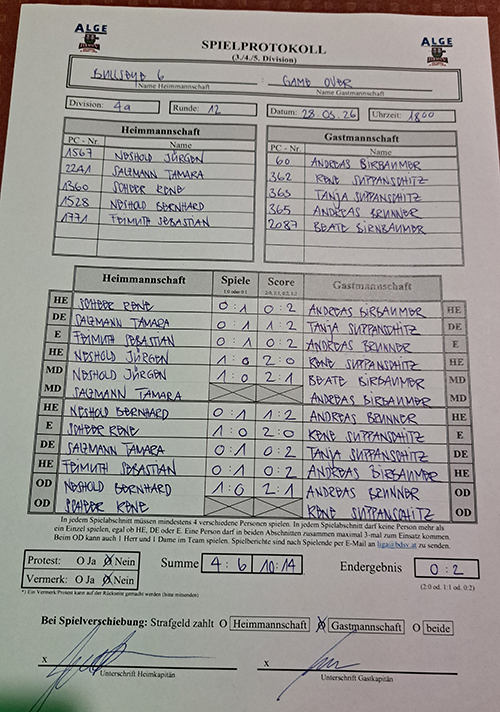 ALGE
ALGE
SPIELPROTOKOLL
(3./4./5. Division)
BULLSEYE 6 : GAME OVER
Name Heimmannschaft Name Gastmannschaft
Division: 4a Runde: 12 Datum: 28.03.26 Uhrzeit: 1800
Heimmannschaft Gastmannschaft
PC - Nr. Name PC - Nr. Name
1567 NESHOLD JÜRGEN 60 ANDREAS BIRBAUMER
2241 SALZMANN TAMARA 362 RENE SUPPANSCHITZ
1360 SCHEER RENE 363 TANJA SUPPANSCHITZ
1528 NESHOLD BERNHARD 365 ANDREAS BRUNNER
1771 FEIMUTH SEBASTIAN 2087 BEATE BIRNBAUMER
Heimmannschaft Spiele Score Gastmannschaft
1:0 oder 0:1 2:0, 2:1, 0:2, 1:2
HE SCHEER RENE 0 : 1 0 : 2 ANDREAS BIRBAUMER HE
DE SALZMANN TAMARA 0 : 1 1 : 2 TANJA SUPPANSCHITZ DE
E FEIMUTH SEBASTIAN 0 : 1 0 : 2 ANDREAS BRUNNER E
HE NESHOLD JÜRGEN 1 : 0 2 : 0 RENE SUPPANSCHITZ HE
MD NESHOLD JÜRGEN 1 : 0 2 : 1 BEATE BIRBAUMER MD
MD SALZMANN TAMARA ANDREAS BIRBAUMER MD
HE NESHOLD BERNHARD 0 : 1 1 : 2 ANDREAS BRUNNER HE
E SCHEER RENE 1 : 0 2 : 0 RENE SUPPANSCHITZ E
DE SALZMANN TAMARA 0 : 1 0 : 2 TANJA SUPPANSCHITZ DE
HE FEIMUTH SEBASTIAN 0 : 1 0 : 2 ANDREAS BIRBAUMER HE
OD NESHOLD BERNHARD 1 : 0 2 : 1 ANDREAS BRUNNER OD
OD SCHEER RENE RENE SUPPANSCHITZ OD
In jedem Spielabschnitt müssen mindestens 4 verschiedene Personen spielen. In jedem Spielabschnitt darf keine Person mehr als
ein Einzel spielen, egal ob HE, DE oder E. Eine Person darf in beiden Abschnitten zusammen maximal 3-mal zum Einsatz kommen.
Beim OD kann auch 1 Herr und 1 Dame im Team spielen. Spielberichte sind nach Spielende per E-Mail an liga@bdsv.at zu senden.
Protest: O Ja O Nein Summe 4 : 6 10:14 Endergebnis 0 : 2
Vermerk: O Ja O Nein (2:0 od. 1:1 od. 0:2)
*) Ein Vermerk/Protest kann auf der Rückseite gemacht werden (bitte mitsenden)
Bei Spielverschiebung: Strafgeld zahlt O Heimmannschaft O Gastmannschaft O beide
x x
Unterschrift Heimkapitän Unterschrift Gastkapitän